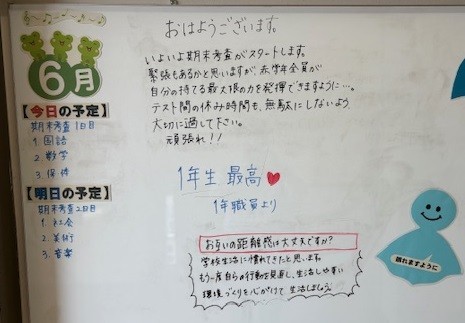 6月
【今日の予定】
期末考査1日目
1. 国語
2. 数学
3. 保体
【明日の予定】
期末考査2日目
1. 社会
2. 美術
3. 音楽
おはようございます。
いよいよ期末考査がスタートします。
緊張もあるかと思いますが、赤学年全員が
自分の持てる最大限の力を発揮できますように…。
テスト間の休み時間も、無駄にしないよう
大切に過して下さい。
頑張れ!!
1年生 最高
1年職員より
お互いの距離感は大丈夫ですか?
学校生活に慣れてきたと思います。
もう一度自らの行動を見直し、生活しやすい
環境づくりを心がけて生活しましょう
晴れますように